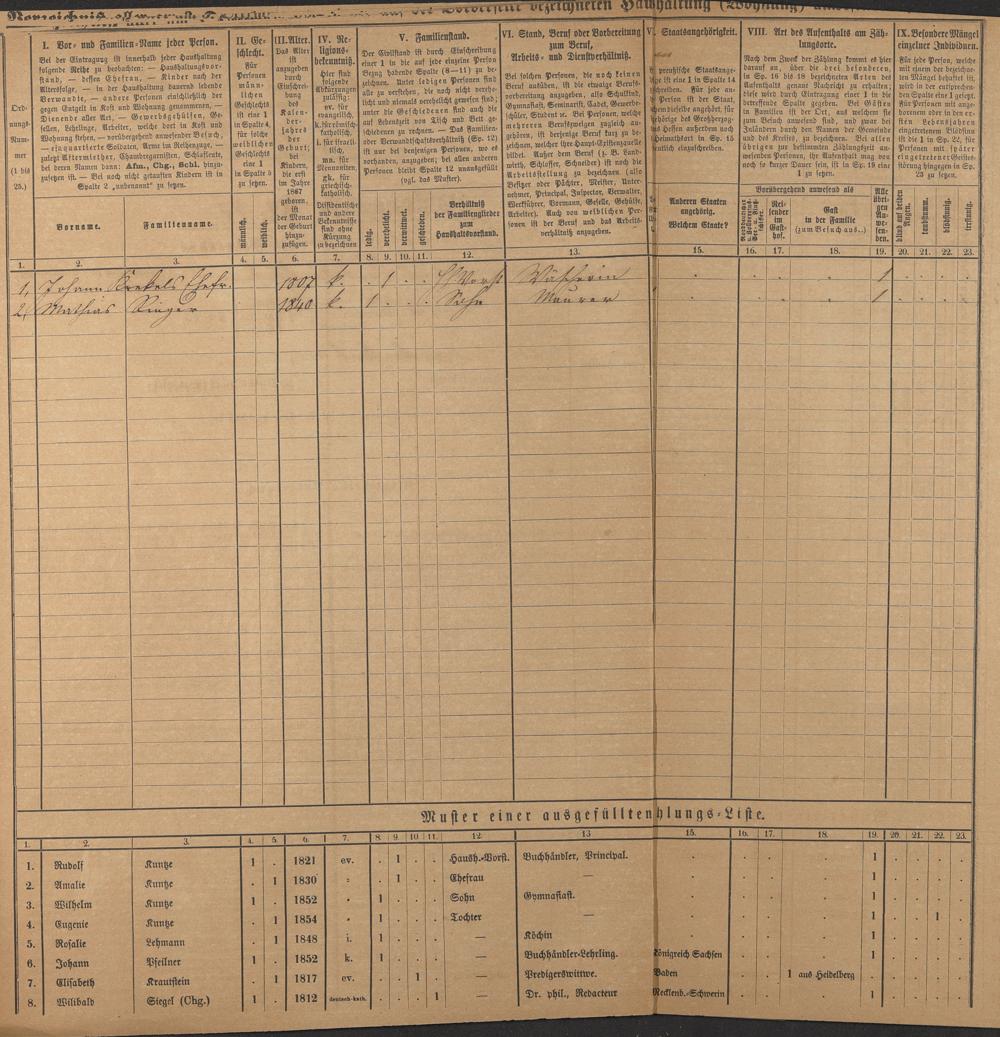 I. Vor- und Familien-Name jeder Person.
Bei der Eintragung ist innerhalb jeder Haushaltung
folgende Reihe zu beobachten: — Haushaltungsvor-
stand, — dessen Ehefrau, — Kinder nach der
Altersfolge, — in der Haushaltung dauernd lebende
Verwandte, — andere Personen einschließlich der
gegen Entgelt in Kost und Wohnung genommenen, —
Dienende aller Art, — Gewerbsgehülfen, Ge-
sellen, Lehrlinge, Arbeiter, welche dort in Kost und
Wohnung stehen, — vorübergehend anwesender Besuch,
— einquartierte Soldaten, Arme im Reihenzuge, —
zuletzt Aftermiether, Chambregarnisten, Schlafleute,
bei deren Namen dann: Afm., Chg., Schl. hinzu-
zusetzen ist. — Bei noch nicht getauften Kindern ist in
Spalte 2 „unbenannt" zu setzen.
Ord-
nungs-
Num-
mer
(1 bis
25.)
Vorname.
Familienname.
II. Ge-
schlecht.
Für
Personen
männ-
lichen
Geschlechts
ist eine 1
in Spalte 4,
für solche
weiblichen
Geschlechts
eine 1
in Spalte 5
zu setzen.
männlich.
weiblich.
III. Alter.
Das Alter
ist
anzugeben
durch
Einschrei-
bung
des
Kalen-
der-
jahres
der
Geburt;
bei
Kindern,
die erst
im Jahre
1867
geboren,
ist
der Monat
der Geburt
hinzu-
zufügen.
IV. Re-
ligions-
bekenntniß.
Hier sind
folgende
Abkürzungen
zulässig:
ev. für
evangelisch,
k. für römisch-
katholisch,
i. für israeli-
tisch,
mn. für
Mennoniten,
gk. für
griechisch-
katholisch.
Dissidentische
und andere
Bekenntnisse
sind ohne
Kürzung
zu bezeichnen
V. Familienstand.
Der Civilstand ist durch Einschreibung
einer 1 in die auf jede einzelne Person
Bezug habende Spalte (8—11) zu be-
zeichnen. Unter ledigen Personen sind
alle zu verstehen, die noch nicht verehe-
licht und niemals verehelicht gewesen sind;
unter die Geschiedenen sind auch die
auf Lebenszeit von Tisch und Bett ge-
schiedenen zu rechnen. — Das Familien-
oder Verwandtschaftsverhältniß (Sp. 12)
ist nur bei denjenigen Personen, wo es
vorhanden, anzugeben; bei allen anderen
Personen bleibt Spalte 12 unausgefüllt
(vgl. das Muster).
ledig.
verehelicht.
verwittwet.
geschieden.
Verhältniß
der Familienglieder
zum
Haushaltsvorstand.
VI. Stand, Beruf oder Vorbereitung
zum Beruf,
Arbeits- und Dienstverhältniß.
Bei solchen Personen, die noch keinen
Beruf ausüben, ist die etwaige Berufs-
vorbereitung anzugeben, also Schulkind,
Gymnasiast, Seminarist, Cadet, Gewerbe-
schüler, Student w. Bei Personen, welche
mehreren Berufszweigen zugleich an-
gehören, ist derjenige Beruf kurz zu be-
zeichnen, welcher ihre Haupt-Existenzquelle
bildet. Außer dem Beruf (z. B. Land-
wirth, Schlosser, Schneider) ist noch die
Arbeitsstellung zu bezeichnen (also
Besitzer oder Pächter, Meister, Unter-
nehmer, Principal, Inspector, Verwalter,
Werkführer, Vormann, Geselle, Gehülfe,
Arbeiter). Auch von weiblichen Per-
sonen ist der Beruf und das Arbeits-
verhältniß anzugeben.
Staatsangehörigkeit.
Anderen Staaten
angehörig.
Welchem Staate?
VIII. Art des Aufenthalts am Zäh-
lungsorte.
Nach dem Zweck der Zählung kommt es hier
darauf an, über die drei besonderen,
in Sp. 16 bis 18 bezeichneten Arten des
Aufenthalts genaue Nachricht zu erhalten;
diese wird durch Eintragung einer 1 in die
betreffende Spalte gegeben. Bei Gästen
in Familien ist der Ort, aus welchem sie
zum Besuch anwesend sind, und zwar bei
Inländern durch den Namen der Gemeinde
und des Kreises, zu bezeichnen. Bei allen
übrigen zur bestimmten Zählungszeit an-
wesenden Personen, ihr Aufenthalt mag von
noch so kurzer Dauer sein, ist in Sp. 19 eine
1 zu setzen.
Vorübergehend anwesend als
Rei-
sender
im
Gast-
hof.
Gast
in der Familie
(zum Besuch aus..)
Alle
übri-
gen
An-
wesen-
den.
IX. Besondere Mängel
einzelner Individuen.
blind auf beiden
Augen.
taubstumm.
blödsinnig.
irrsinnig.
1. 2. 3. 4. 5. 6. 7. 8. 9. 10. 11. 12. 13. 15. 16. 17. 18. 19. 20. 21. 22. 23.
1, Johann Krekels Ehefr. 1807 k. . 1 . . H/Vorst Wäscherin . . . . 1 . . . .
2, Mathias Rieger 1840 k. 1 . . . Sohn Maurer . . . . 1 . . . .
Muster einer ausgefüllten hlungs-Liste.
1. 2. 3. 4. 5. 6. 7. 8. 9. 10 11. 12. 13 15. 16. 17. 18. 19. 20. 21. 22. 23.
1. Rudolf Kuntze 1 . 1821 ev. . 1 . . Haush.-Vorst. Buchhändler, Principal. . . . . 1 . . . .
2. Amalie Kuntze . 1 1830 " . 1 . . Ehefrau — . . . . 1 . . . .
3. Wilhelm Kuntze 1 . 1852 " 1 . . . Sohn Gymnasiast. . . . . 1 . . . .
4. Eugenie Kuntze . 1 1854 " 1 . . . Tochter — . . . . 1 . . 1 .
5. Rosalie Lehmann . 1 1848 i. 1 . . . — Köchin . . . . 1 . . . .
6. Johann Pfeilner 1 . 1852 k. 1 . . . — Buchhändler-Lehrling. Königreich Sachsen . . . 1 . . . .
7. Elisabeth Krautstein . 1 1817 ev. . . 1 . — Predigerswittwe. Baden . . 1 aus Heidelberg . . . . .
8. Wilibald Siegel (Chg.) 1 . 1812 deutsch-kath. . . . 1 — Dr. phil., Redacteur Mecklenb.-Schwerin . . . 1 . . . .